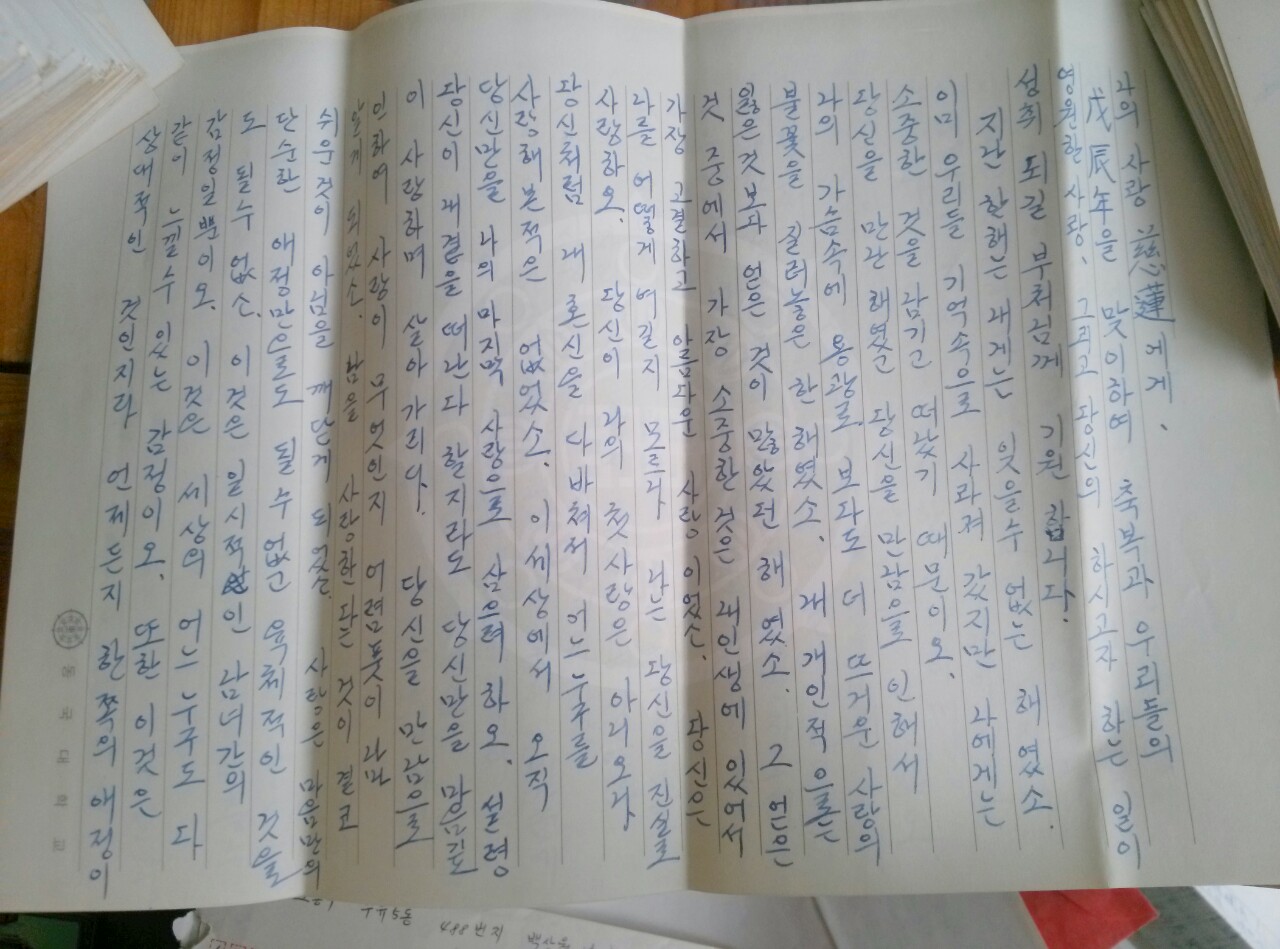 나의 사랑 慈蓮에게.
戊辰年을 맞이하여 축복과 우리들의
영원한 사랑, 그리고 당신의 하시고자 하는 일이
성취 되길 부처님께 기원 합니다.
지난 한해는 내게는 잊을수 없는 해 였소.
이미 우리들 기억속으로 사라져 갔지만 나에게는
소중한 것을 남기고 떠났기 때문이오.
당신을 만난 해였고 당신을 만남으로 인해서
나의 가슴속에 용광로 보다도 더 뜨거운 사랑의
불꽃을 질러놓은 한 해였소. 내 개인적으로는
잃은것 보다 얻은 것이 많았던 해 였소. 그 얻은
것 중에서 가장 소중한 것은 내인생에 있어서
가장 고결하고 아름다운 사랑 이었소. 당신은
나를 어떻게 여길지 모르나 나는 당신을 진실로
사랑하오. 당신이 나의 첫사랑은 아니오나
당신처럼 내 혼신을 다바쳐서 어느누구를
사랑해 본적은 없었소. 이세상에서 오직
당신만을 나의 마지막 사랑으로 삼으려 하오. 설령
당신이 내곁을 떠난다 할지라도 당신만을 마음깊
이 사랑하며 살아 가리다. 당신을 만남으로
인하여 사랑이 무엇인지 어렴풋이 나마
알게 되었소. 남을 사랑한다는 것이 결코
쉬운것이 아님을 깨닫게 되었소. 사랑은 마음만의
단순한 애정만으로도 될 수 없고 육체적인 것을
도 될수 없소. 이것은 일시적인 남녀간의
감정일뿐이오. 이것은 세상의 어느누구도 다
같이 느낄수 있는 감정이오. 또한 이것은
상대적인 것인지라 언제든지 한쪽의 애정이
동국대학교
수유5동 488번지